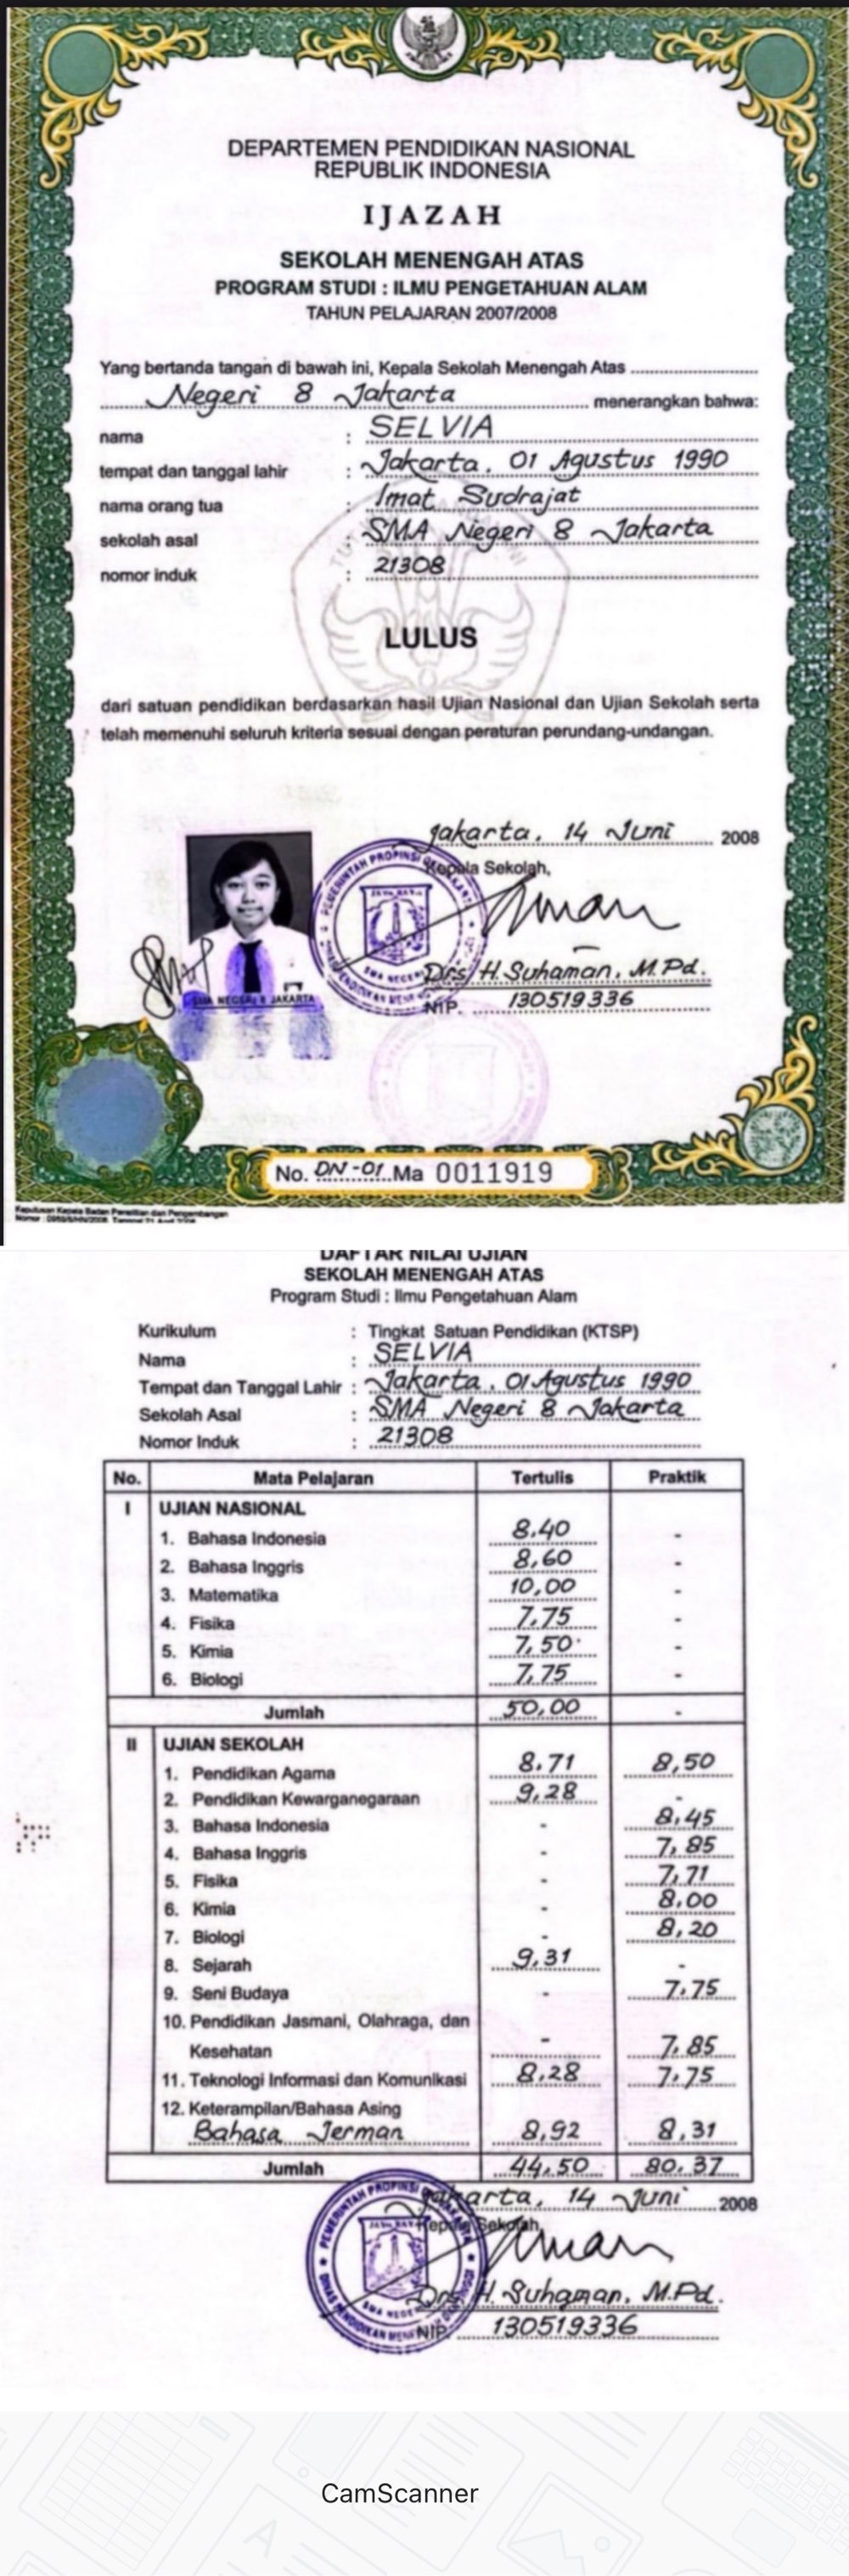 DEPARTEMEN PENDIDIKAN NASIONAL
REPUBLIK INDONESIA
IJAZAH
SEKOLAH MENENGAH ATAS
PROGRAM STUDI : ILMU PENGETAHUAN ALAM
TAHUN PELAJARAN 2007/2008
Yang bertanda tangan di bawah ini, Kepala Sekolah Menengah Atas
Negeri 8 Jakarta menerangkan bahwa:
nama : SELVIA
tempat dan tanggal lahir : Jakarta, 01 Agustus 1990
nama orang tua : Imat Sudrajat
sekolah asal : SMA Negeri 8 Jakarta
nomor induk : 21308
LULUS
dari satuan pendidikan berdasarkan hasil Ujian Nasional dan Ujian Sekolah serta
telah memenuhi seluruh kriteria sesuai dengan peraturan perundang-undangan.
Jakarta, 14 Juni 2008
Kepala Sekolah,
Drs. H. Suhaman, M.Pd.
NIP. 130519336
SMA NEGERI 8 JAKARTA
No. DN-01 Ma 0011919
Keputusan Kepala Badan Penelitian dan Pengembangan
DAFTAR NILAI UJIAN
SEKOLAH MENENGAH ATAS
Program Studi : Ilmu Pengetahuan Alam
Kurikulum : Tingkat Satuan Pendidikan (KTSP)
Nama : SELVIA
Tempat dan Tanggal Lahir : Jakarta, 01 Agustus 1990
Sekolah Asal : SMA Negeri 8 Jakarta
Nomor Induk : 21308
No. Mata Pelajaran Tertulis Praktik
I UJIAN NASIONAL
1. Bahasa Indonesia 8,40 -
2. Bahasa Inggris 8,60 -
3. Matematika 10,00 -
4. Fisika 7,75 -
5. Kimia 7,50 -
6. Biologi 7,75 -
Jumlah 50,00 -
II UJIAN SEKOLAH
1. Pendidikan Agama 8,71 8,50
2. Pendidikan Kewarganegaraan 9,28 -
3. Bahasa Indonesia - 8,45
4. Bahasa Inggris - 7,85
5. Fisika - 7,71
6. Kimia - 8,00
7. Biologi - 8,20
8. Sejarah 9,31 -
9. Seni Budaya - 7,75
10. Pendidikan Jasmani, Olahraga, dan
Kesehatan - 7,85
11. Teknologi Informasi dan Komunikasi 8,28 7,75
12. Keterampilan/Bahasa Asing
Bahasa Jerman 8,92 8,31
Jumlah 44,50 80,37
Jakarta, 14 Juni 2008
Kepala Sekolah,
Drs. H. Suhaman, M.Pd.
NIP. 130519336
CamScanner